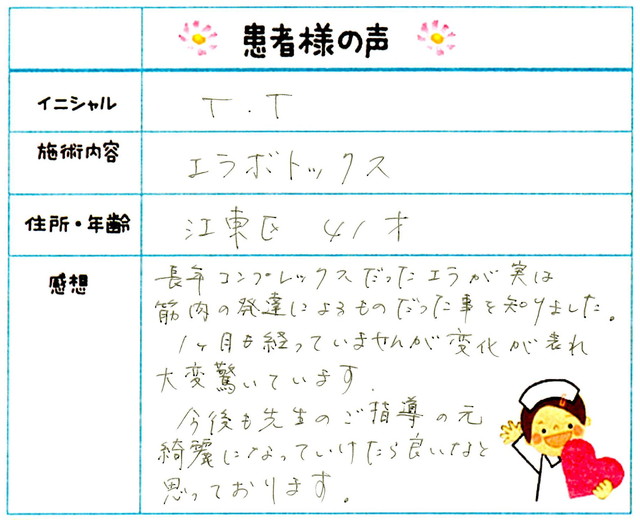 患者様の声
イニシャル T.T
施術内容 エラボトックス
住所・年齢 江東区 41才
感想
長年コンプレックスだったエラが実は
筋肉の発達によるものだった事を知りました。
1ヶ月も経っていませんが変化が表れ
大変驚いています.
今後も先生のご指導の元
綺麗になっていけたら良いなと
思っております。